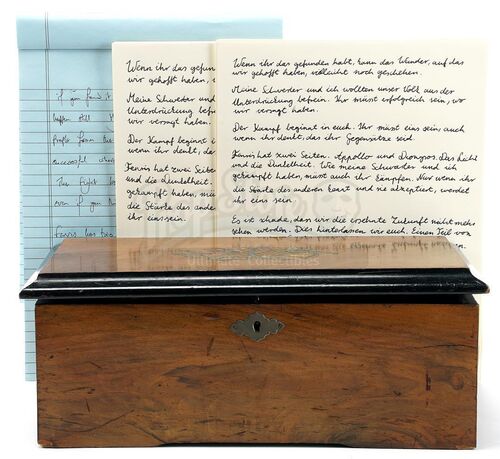 Wenn ihr das gefunden habt, kann das Wunder, auf das
wir gehofft haben, vielleicht noch geschehen.
Meine Schwester und ich wollten unser Volk aus der
Unterdrückung befreien. Ihr müsst erfolgreich sein, wo
wir versagt haben.
Der Kampf beginnt in euch. Ihr müsst eins sein, auch
wenn ihr denkt, dass ihr Gegensätze seid.
Fenris hat zwei Seiten. Appollo und Dionysos. Das Licht
und die Dunkelheit. Wie meine Schwester und ich
gekämpft haben, müsst auch ihr kämpfen. Nur wenn ihr
die Stärke des anderen kennt und sie akzeptiert, werdet
ihr eins sein.
Es ist schade, dass wir die ersehnte Zukunft nicht mehr
sehen werden. Dies hinterlassen wir euch. Einen Teil von
Wenn ihr das gefunden
wir gehofft haben,
Meine Schwester und
Unterdrückung befreien
wir versagt haben.
Der Kampf beginnt i
wenn ihr denkt, da
Fenris hat zwei Seiten
und die Dunkelheit.
gekämpft haben, mü
die Stärke des ande
ihr eins sein.
If you find it
successful
The fight
even if you
Fenris has two
Ultimate Collectibles